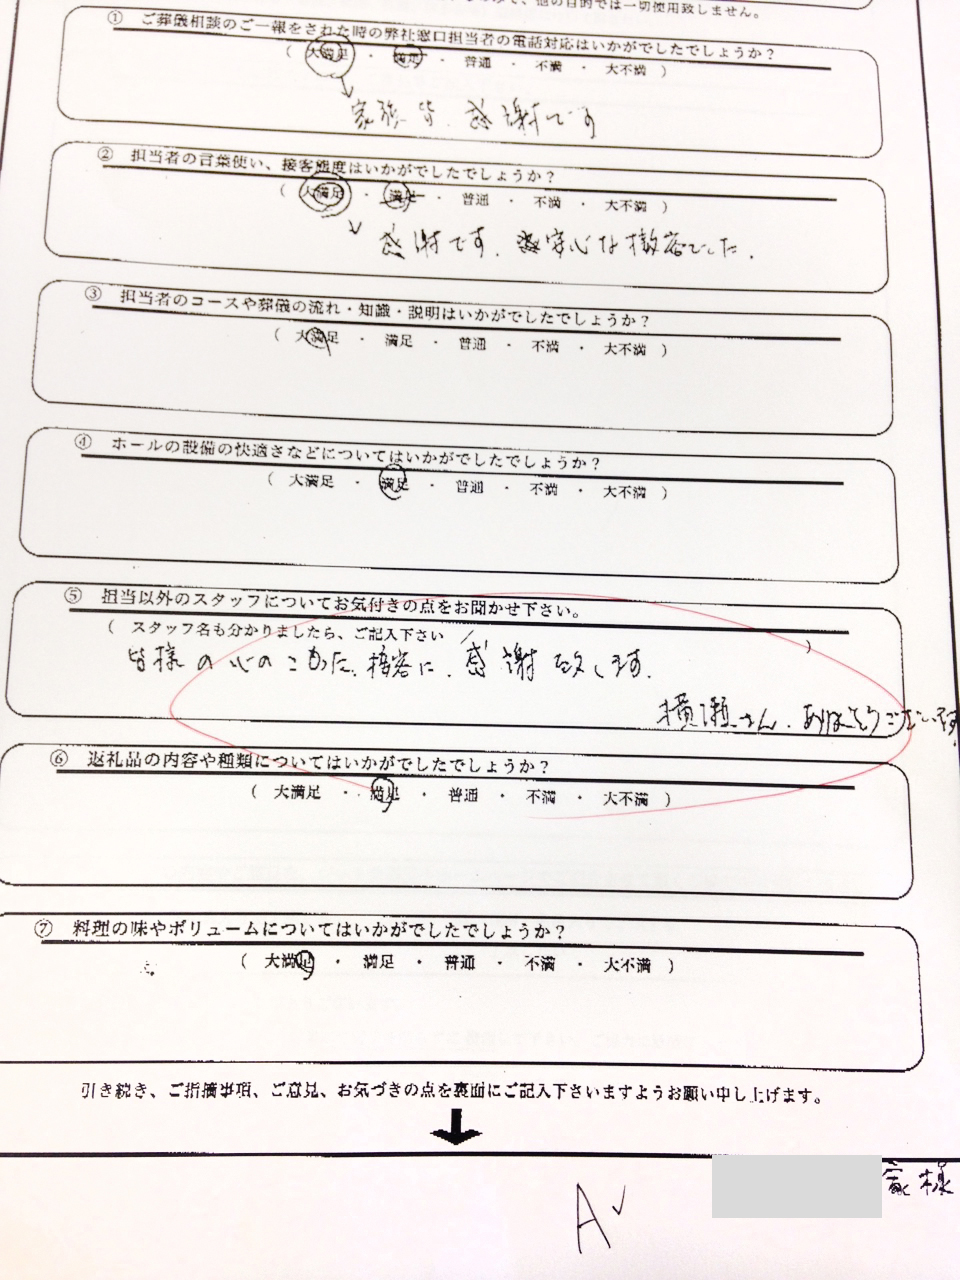 の目的では一切使用致しません。
① ご葬儀相談のご一報をされた時の弊社窓口担当者の電話対応はいかがでしたでしょうか？
（ 大満足 ・ 満足 ・ 普通 ・ 不満 ・ 大不満 ）
家族皆、感謝です
② 担当者の言葉使い、接客態度はいかがでしたでしょうか？
（ 大満足 ・ 満足 ・ 普通 ・ 不満 ・ 大不満 ）
感謝です、安心な接客でした.
③ 担当者のコースや葬儀の流れ・知識・説明はいかがでしたでしょうか？
（ 大満足 ・ 満足 ・ 普通 ・ 不満 ・ 大不満 ）
④ ホールの設備の快適さなどについてはいかがでしたでしょうか？
（ 大満足 ・ 満足 ・ 普通 ・ 不満 ・ 大不満 ）
⑤ 担当以外のスタッフについてお気付きの点をお聞かせ下さい。
（ スタッフ名も分かりましたら、ご記入下さい ）
皆様の心のこもった、接客に、感謝致します.
横瀬さん、ありがとうございます
⑥ 返礼品の内容や種類についてはいかがでしたでしょうか？
（ 大満足 ・ 満足 ・ 普通 ・ 不満 ・ 大不満 ）
⑦ 料理の味やボリュームについてはいかがでしたでしょうか？
（ 大満足 ・ 満足 ・ 普通 ・ 不満 ・ 大不満 ）
引き続き、ご指摘事項、ご意見、お気づきの点を裏面にご記入下さいますようお願い申し上げます。
家様
A